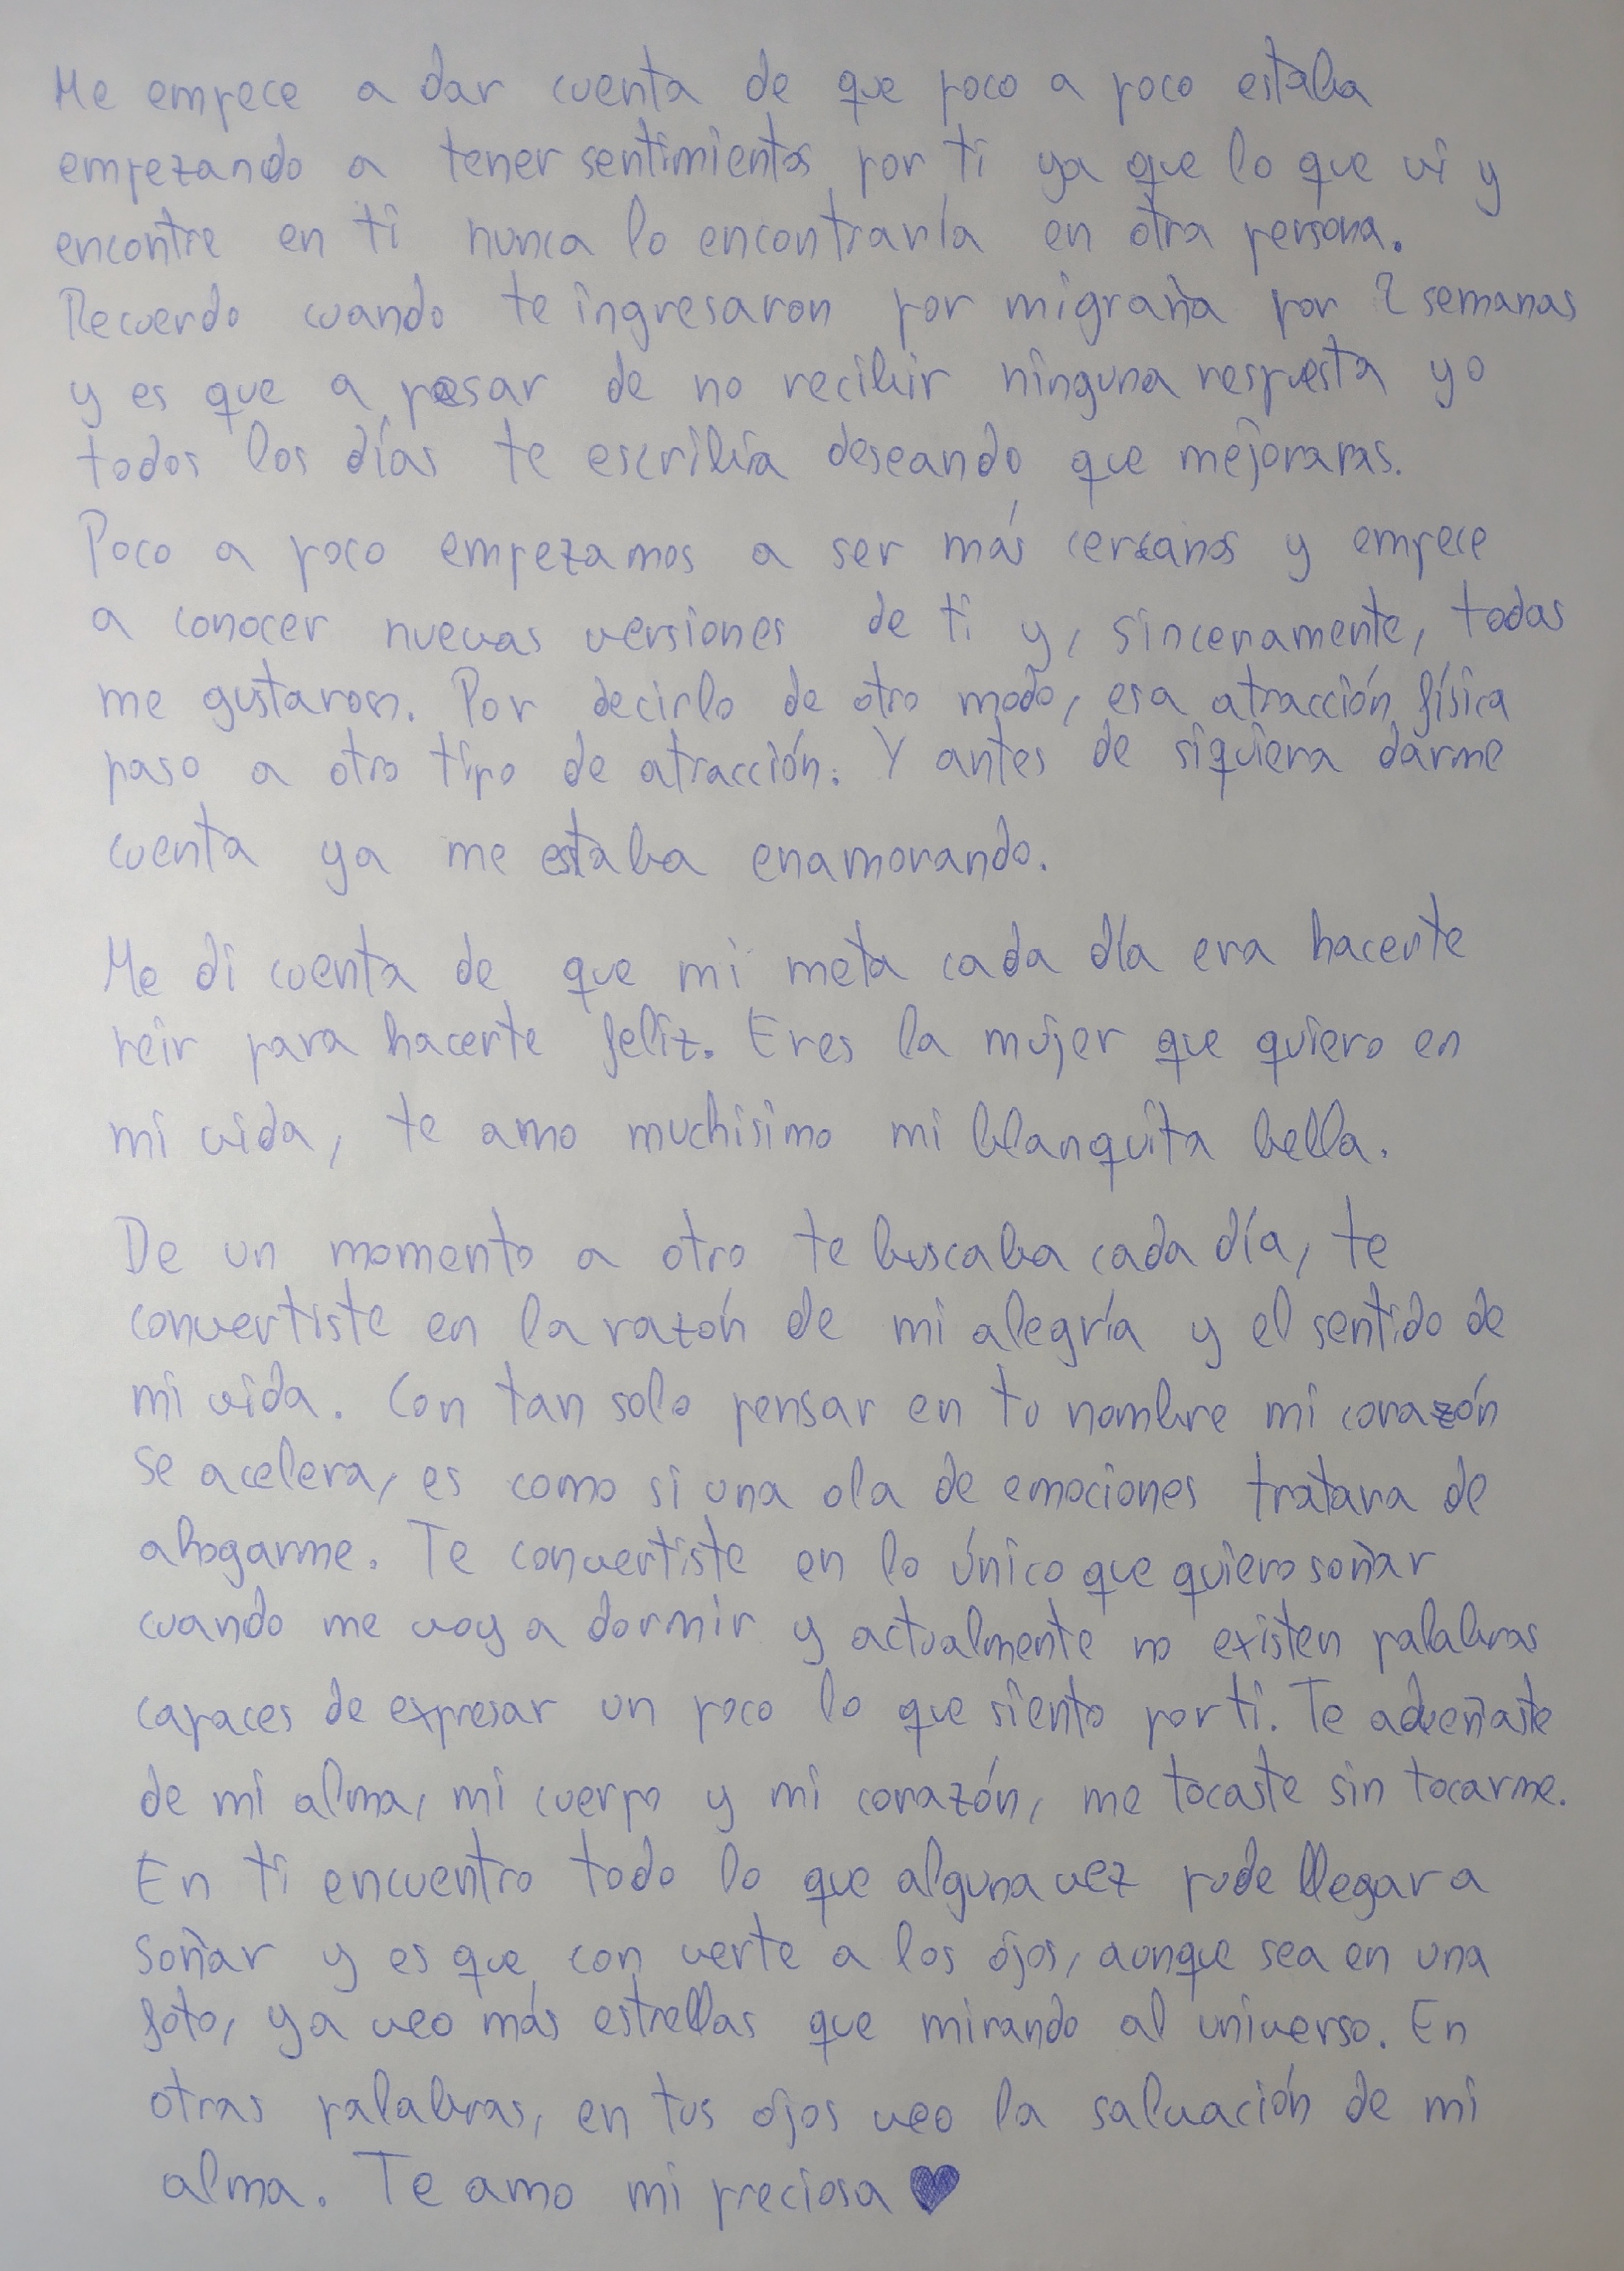 Me empece a dar cuenta de que poco a poco estaba
empezando a tener sentimientos por ti ya que lo que vi y
encontre en ti nunca lo encontraría en otra persona.
Recuerdo cuando te ingresaron por migraña por 2 semanas
y es que a pesar de no recibir ninguna respuesta yo
todos los días te escribía deseando que mejoraras.
Poco a poco empezamos a ser más cercanos y empece
a conocer nuevas versiones de ti y, sinceramente, todas
me gustaron. Por decirlo de otro modo, esa atracción física
paso a otro tipo de atracción. Y antes de siquiera darme
cuenta ya me estaba enamorando.
Me di cuenta de que mi meta cada día era hacerte
reir para hacerte feliz. Eres la mujer que quiero en
mi vida, te amo muchisimo mi blanquita bella.
De un momento a otro te buscaba cada día, te
convertiste en la razón de mi alegría y el sentido de
mi vida. Con tan solo pensar en tu nombre mi corazón
se acelera, es como si una ola de emociones tratara de
ahogarme. Te convertiste en lo único que quiero soñar
cuando me voy a dormir y actualmente no existen palabras
capaces de expresar un poco lo que siento por ti. Te adueñaste
de mi alma, mi cuerpo y mi corazón, me tocaste sin tocarme.
En ti encuentro todo lo que alguna vez pude llegar a
soñar y es que con verte a los ojos, aunque sea en una
foto, ya veo más estrellas que mirando al universo. En
otras palabras, en tus ojos veo la salvación de mi
alma. Te amo mi preciosa ♥